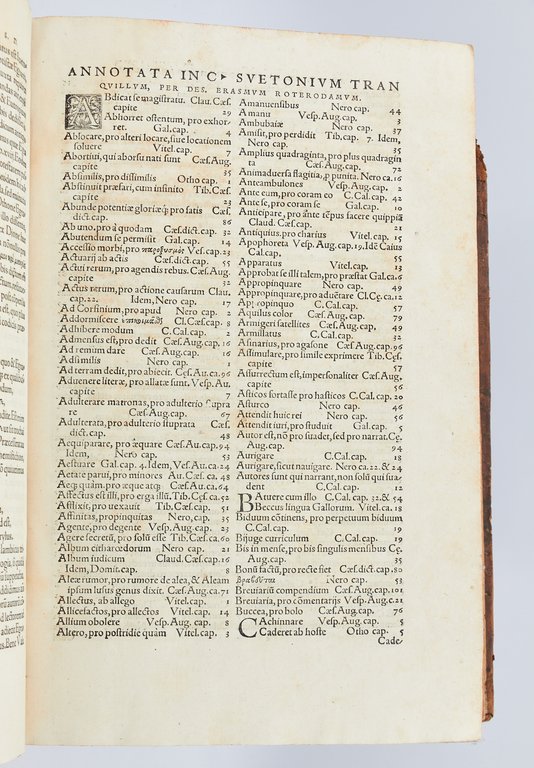 ANNOTATA IN C▸ SVETONIVM TRAN
QVILLVM, PER DES. ERASMVM ROTERODAMVM.
ABdicat se magistratu. Clau. Cæs.
capite 29
Abhorret ostentum, pro exhor-
ret. Gal.cap. 4
Ablocare, pro alteri locare, siue locationem
soluere Vitel.cap. 7
Abortiui, qui aborsu nati sunt Cæs.Aug.
capite 35
Absimilis, pro dissimilis Otho cap. 1
Abstinuit præsari, cum infinito Tib.Cæs.
capite 23
Abunde potentiæ gloriæq; pro satis Cæs.
dict.cap. 86
Ab uno, pro à quodam Cæs.dict.cap. 32
Abutendum se permisit Gal.cap. 14
Accessio morbi, pro Ves.cap. 23
Actuarij ab actis Cæs.dict.cap. 55
Actui rerum, pro agendis rebus. Cæs.Aug.
capite 32
Actus rerum, pro actione causarum Clau.
cap.22. Idem, Nero cap. 17
Ad Corfinium, pro apud Nero cap. 2
Addormiscere Cl.Cæs.cap. 8
Adhibere modum C.Cal.cap. 2
Admensus est, pro dedit Cæs.Aug.cap. 16
Ad remum dare Cæs.Aug.cap. 16
Adsimilis Nero cap. 1
Ad terram dedit, pro abiecit. Cęs.Au.ca.96
Aduenere literæ, pro allatæ sunt. Vesp.Au.
capite 7
Adulterare matronas, pro adulterio stupra
re Cæs.Aug.cap. 67
Adulterata, pro adulterio stuprata Cæs.
dict.cap. 48
Aequiparare, pro æquare Cæs.Au.cap.94
Idem, Nero cap. 53
Aestuare Gal.cap. 4. Idem, Ves.Au.ca.24
Aetate parui, pro minores Au.Cæs.ca. 48
Aeq; quàm, pro æque atq; Cæs.Au.ca.64
Affectus est illi, pro erga illū. Tib.Cęs.ca.52
Afflixit, pro uexauit Tib.Cæs.cap. 51
Affinitas, propinquitas Nero,cap. 35
Agente, pro degente Vesp.Aug.cap. 23
Agere secretū, pro solū esse Tib.Cæs.ca.60
Album citharœdorum Nero cap. 21
Album iudicum Claud.Cæs.cap. 16
Idem, Domit.cap. 8
Aleæ rumor, pro rumore de alea, & Aleam
ipsum lusus genus dixit. Cæs.Aug.ca.71
Allectus, ab allego Vitel.cap. 1
Allicefactos, pro allectos Vitel.cap. 14
Allium obolere Vesp.Aug.cap. 8
Altero, pro postridie quàm Vitel.cap. 3
Amanuensibus Nero cap. 44
Amanu Vesp.Aug.cap. 3
Ambubaiæ Nero cap. 37
Amisit, pro perdidit Tib.cap. 7. Idem,
Nero cap. 35
Amplius quadraginta, pro plus quadragin
ta Cæs.Aug.cap. 72
Animaduersa flagitia, ꝓ punita. Nero ca.16
Anteambulones Vesp.Aug.cap. 2
Ante eum, pro coram eo C.Cal.cap. 42
Ante se, pro coram se Gal.cap. 10
Anticipare, pro ante tēpus facere quippiā
Claud.Cæs.cap. 21
Antiquius, pro charius Vitel.cap. 15
Apophoreta Vesp.Aug.cap.19. Idē Caius
Cal.cap. 55
Apparatus Vitel.cap. 13
Approbasse illi talem, pro præstat Gal.ca.6
Appropinquare Nero cap. 49
Appropinquare, pro aduētare Cl.Cę.ca.12
Appropinquo C.Cal.cap. 57
Aquilus color Cæs.Aug.cap. 79
Armigeri satellites Cæs.Aug.cap. 49
Armillatus C.Cal.cap. 32
Asinarius, pro agasone Cæs.Aug.cap.96
Assimulare, pro simile exprimere Tib.Cęs.
capite 57
Assurrectum est, impersonaliter Cæs.Aug.
capite 56
Asticos sortasse pro hasticos C.Cal.cap. 20
Asturco Nero cap. 46
Attendit huic rei Nero cap. 56
Attendit iuri, pro studuit Gal.cap. 5
Autor est, nō pro suadet, sed pro narrat. Cę.
Aug.cap. 94
Aurigare C.Cal.cap. 18
Aurigare, sicut nauigare. Nero ca.22.& 24
Autores sunt qui narrant, non solū qui sua-
dent C.Cal.cap. 12
BAtuere cum illo C.Cal.cap. 32.& 54
Beccus lingua Gallorum. Vitel.ca.18
Biduum cōtinens, pro perpetuum biduum
C.Cal.cap. 19
Bijuge curriculum C.Cal.cap. 19
Bis in mense, pro bis singulis mensibus Cę.
Aug.cap. 35
Bonū factū, pro recte fiet Cæs.dict.cap.80
Nero cap. 53
Breuiariū compendium Cæs.Aug.cap.101
Breuiaria, pro cōmentarijs Vesp.Aug.c.21
Buccea, pro bolo Cæs.Aug.cap. 76
CAchinnare Vesp.Aug.cap. 5
Caderet ab hoste Otho cap. 5
Cade-